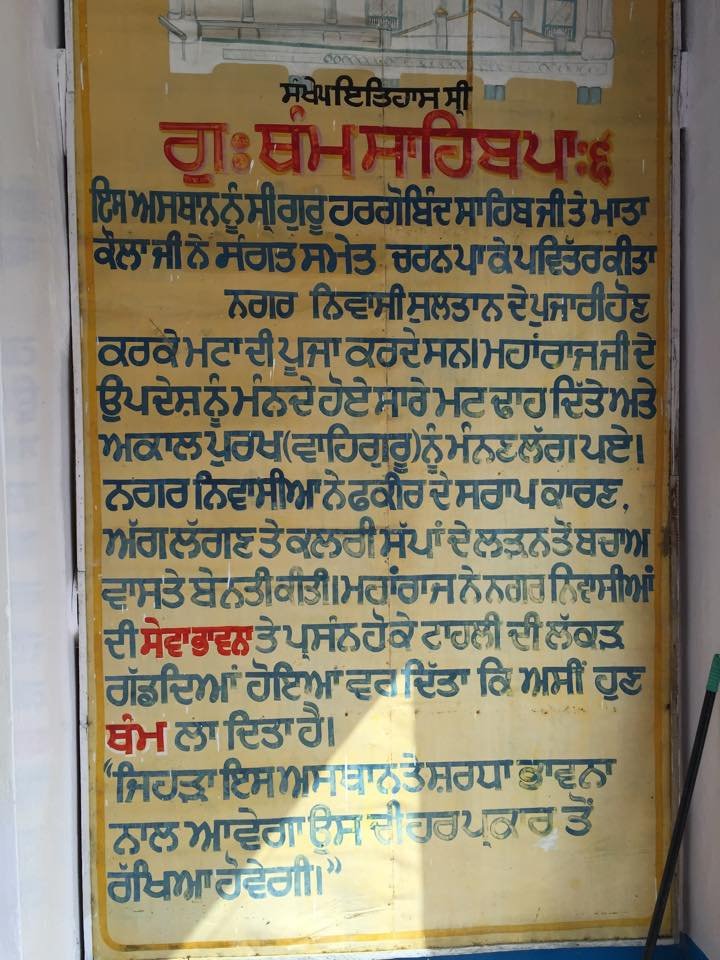 ਸੰਖੇਪ ਇਤਿਹਾਸ ਸ੍ਰੀ
ਗੁ: ਥੰਮ ਸਾਹਿਬ ਪਾ:੬
ਇਸ ਅਸਥਾਨ ਨੂੰ ਸ੍ਰੀ ਗੁਰੂ ਹਰਗੋਬਿੰਦ ਸਾਹਿਬ ਜੀ ਤੇ ਮਾਤਾ
ਕੌਲਾ ਜੀ ਨੇ ਸੰਗਤ ਸਮੇਤ ਚਰਨ ਪਾ ਕੇ ਪਵਿੱਤਰ ਕੀਤਾ
ਨਗਰ ਨਿਵਾਸੀ ਸੁਲਤਾਨ ਦੇ ਪੁਜਾਰੀ ਹੋਣ
ਕਰਕੇ ਮਟਾ ਦੀ ਪੂਜਾ ਕਰਦੇ ਸਨ। ਮਹਾਂਰਾਜ ਜੀ ਦੇ
ਉਪਦੇਸ਼ ਨੂੰ ਮੰਨਦੇ ਹੋਏ ਸਾਰੇ ਮਟ ਢਾਹ ਦਿੱਤੇ ਅਤੇ
ਅਕਾਲ ਪੁਰਖ (ਵਾਹਿਗੁਰੂ) ਨੂੰ ਮੰਨਣ ਲੱਗ ਪਏ।
ਨਗਰ ਨਿਵਾਸੀਆ ਨੇ ਫਕੀਰ ਦੇ ਸਰਾਪ ਕਾਰਣ,
ਅੱਗ ਲੱਗਣ ਤੇ ਕਲਰੀ ਸੱਪਾਂ ਦੇ ਲੜਨ ਤੋਂ ਬਚਾਅ
ਵਾਸਤੇ ਬੇਨਤੀ ਕੀਤੀ। ਮਹਾਂਰਾਜ ਨੇ ਨਗਰ ਨਿਵਾਸੀਆਂ
ਦੀ ਸੇਵਾ ਭਾਵਨਾ ਤੇ ਪ੍ਰਸੰਨ ਹੋਕੇ ਟਾਹਲੀ ਦੀ ਲੱਕੜ
ਗੱਛਦਿਆਂ ਹੋਇਆਂ ਵਰ ਦਿੱਤਾ ਕਿ ਅਸੀਂ ਹੁਣ
ਥੰਮ ਲਾ ਦਿਤਾ ਹੈ।
“ਜਿਹੜਾ ਇਸ ਅਸਥਾਨ ਤੇ ਸ਼ਰਧਾ ਭਾਵਨਾ
ਨਾਲ ਆਵੇਗਾ ਉਸ ਦੀ ਹਰ ਪ੍ਰਕਾਰ ਤੋਂ
ਰੱਖਿਆ ਹੋਵੇਗੀ।”